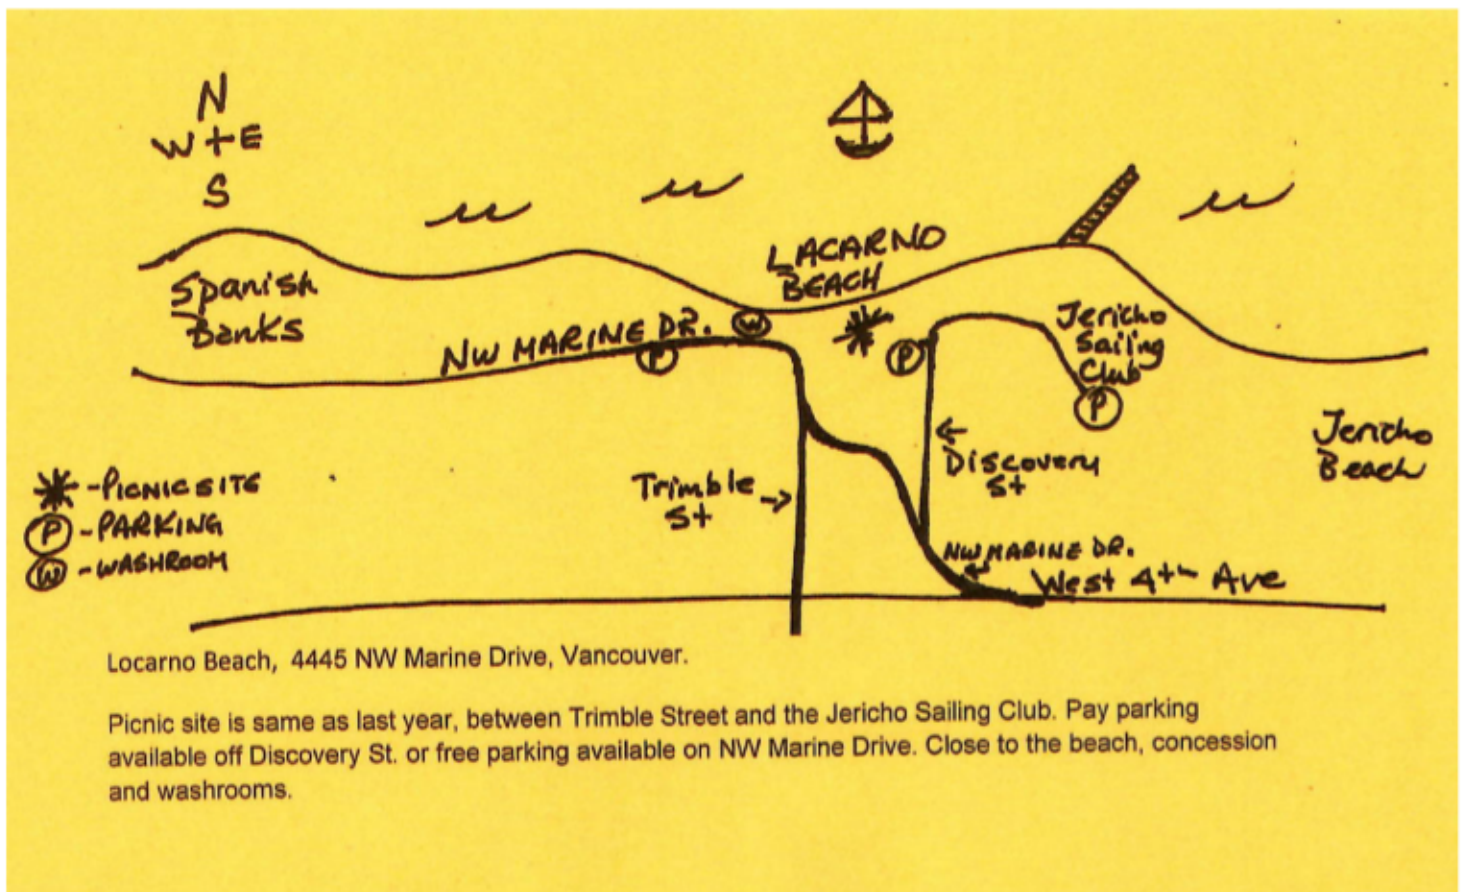 N
W + E
S
LACARNO
BEACH
Spanish
Banks
NW MARINE DR.
W
P
P
Jericho
Sailing
Club
P
Jericho
Beach
Trimble
St
Discovery
St
- PICNIC SITE
P - PARKING
W - WASHROOM
NW MARINE DR.
West 4th Ave
Locarno Beach, 4445 NW Marine Drive, Vancouver.
Picnic site is same as last year, between Trimble Street and the Jericho Sailing Club. Pay parking
available off Discovery St. or free parking available on NW Marine Drive. Close to the beach, concession
and washrooms.